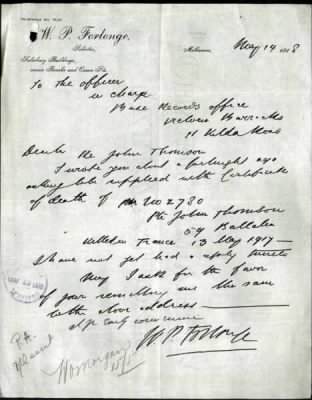 Telephone No. 1420
W. P. Forlonge,
Solicitor,
Salisbury Buildings,
corner Bourke and Queen Sts.
Melbourne, May 14 1918
To the Officer
in charge
Base Records Office
Victoria Barracks
St Kilda Road
Death Pte John Thomson
I wrote you about a fortnight ago
asking to be supplied with Certificate
of death of No 2780
Pte John Thomson
59 Battalion
killed in France 13 May 1917 —
I have not yet had a reply thereto
May I ask for the favor
of your remitting me the same
to the above address
at yr early convenience
W. P. Forlonge
P.A.
15/5